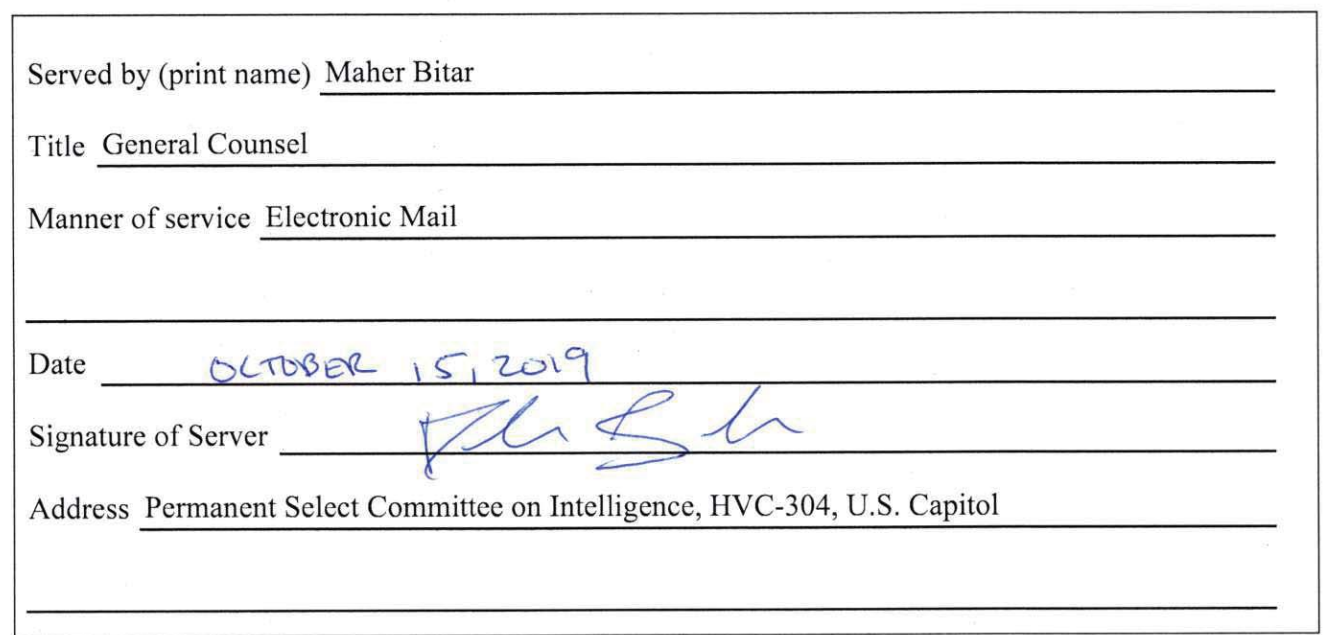 Served by (print name) Maher Bitar
Title General Counsel
Manner of service Electronic Mail
Date OCTOBER 15, 2019
Signature of Server
Address Permanent Select Committee on Intelligence, HVC-304, U.S. Capitol